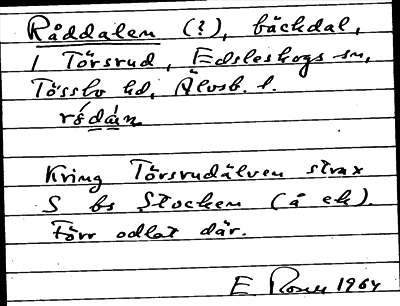 Råddalen (?), bäckdal,
i Törsrud, Edsleskogs sn,
Tössbo hd, Älvsb. l.
Kring Törsrudälven strax
S bs Stocken (å ek).
Förr odlat där.
E Rosen 1964